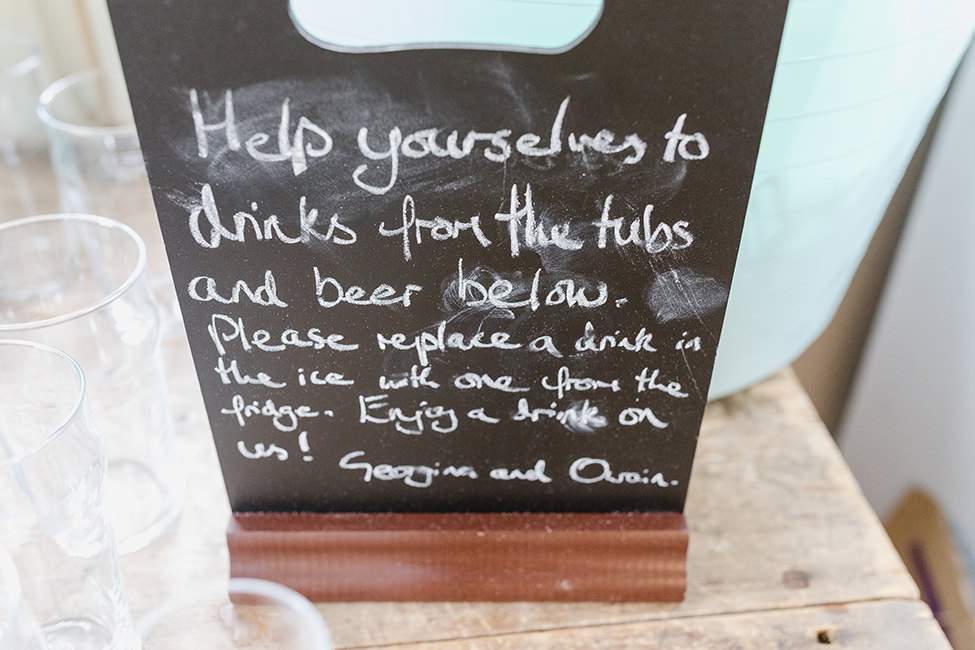 Help yourselves to
drinks from the tubs
and beer below.
Please replace a drink in
the ice with one from the
fridge. Enjoy a drink on
us!
Georgina and Owain.